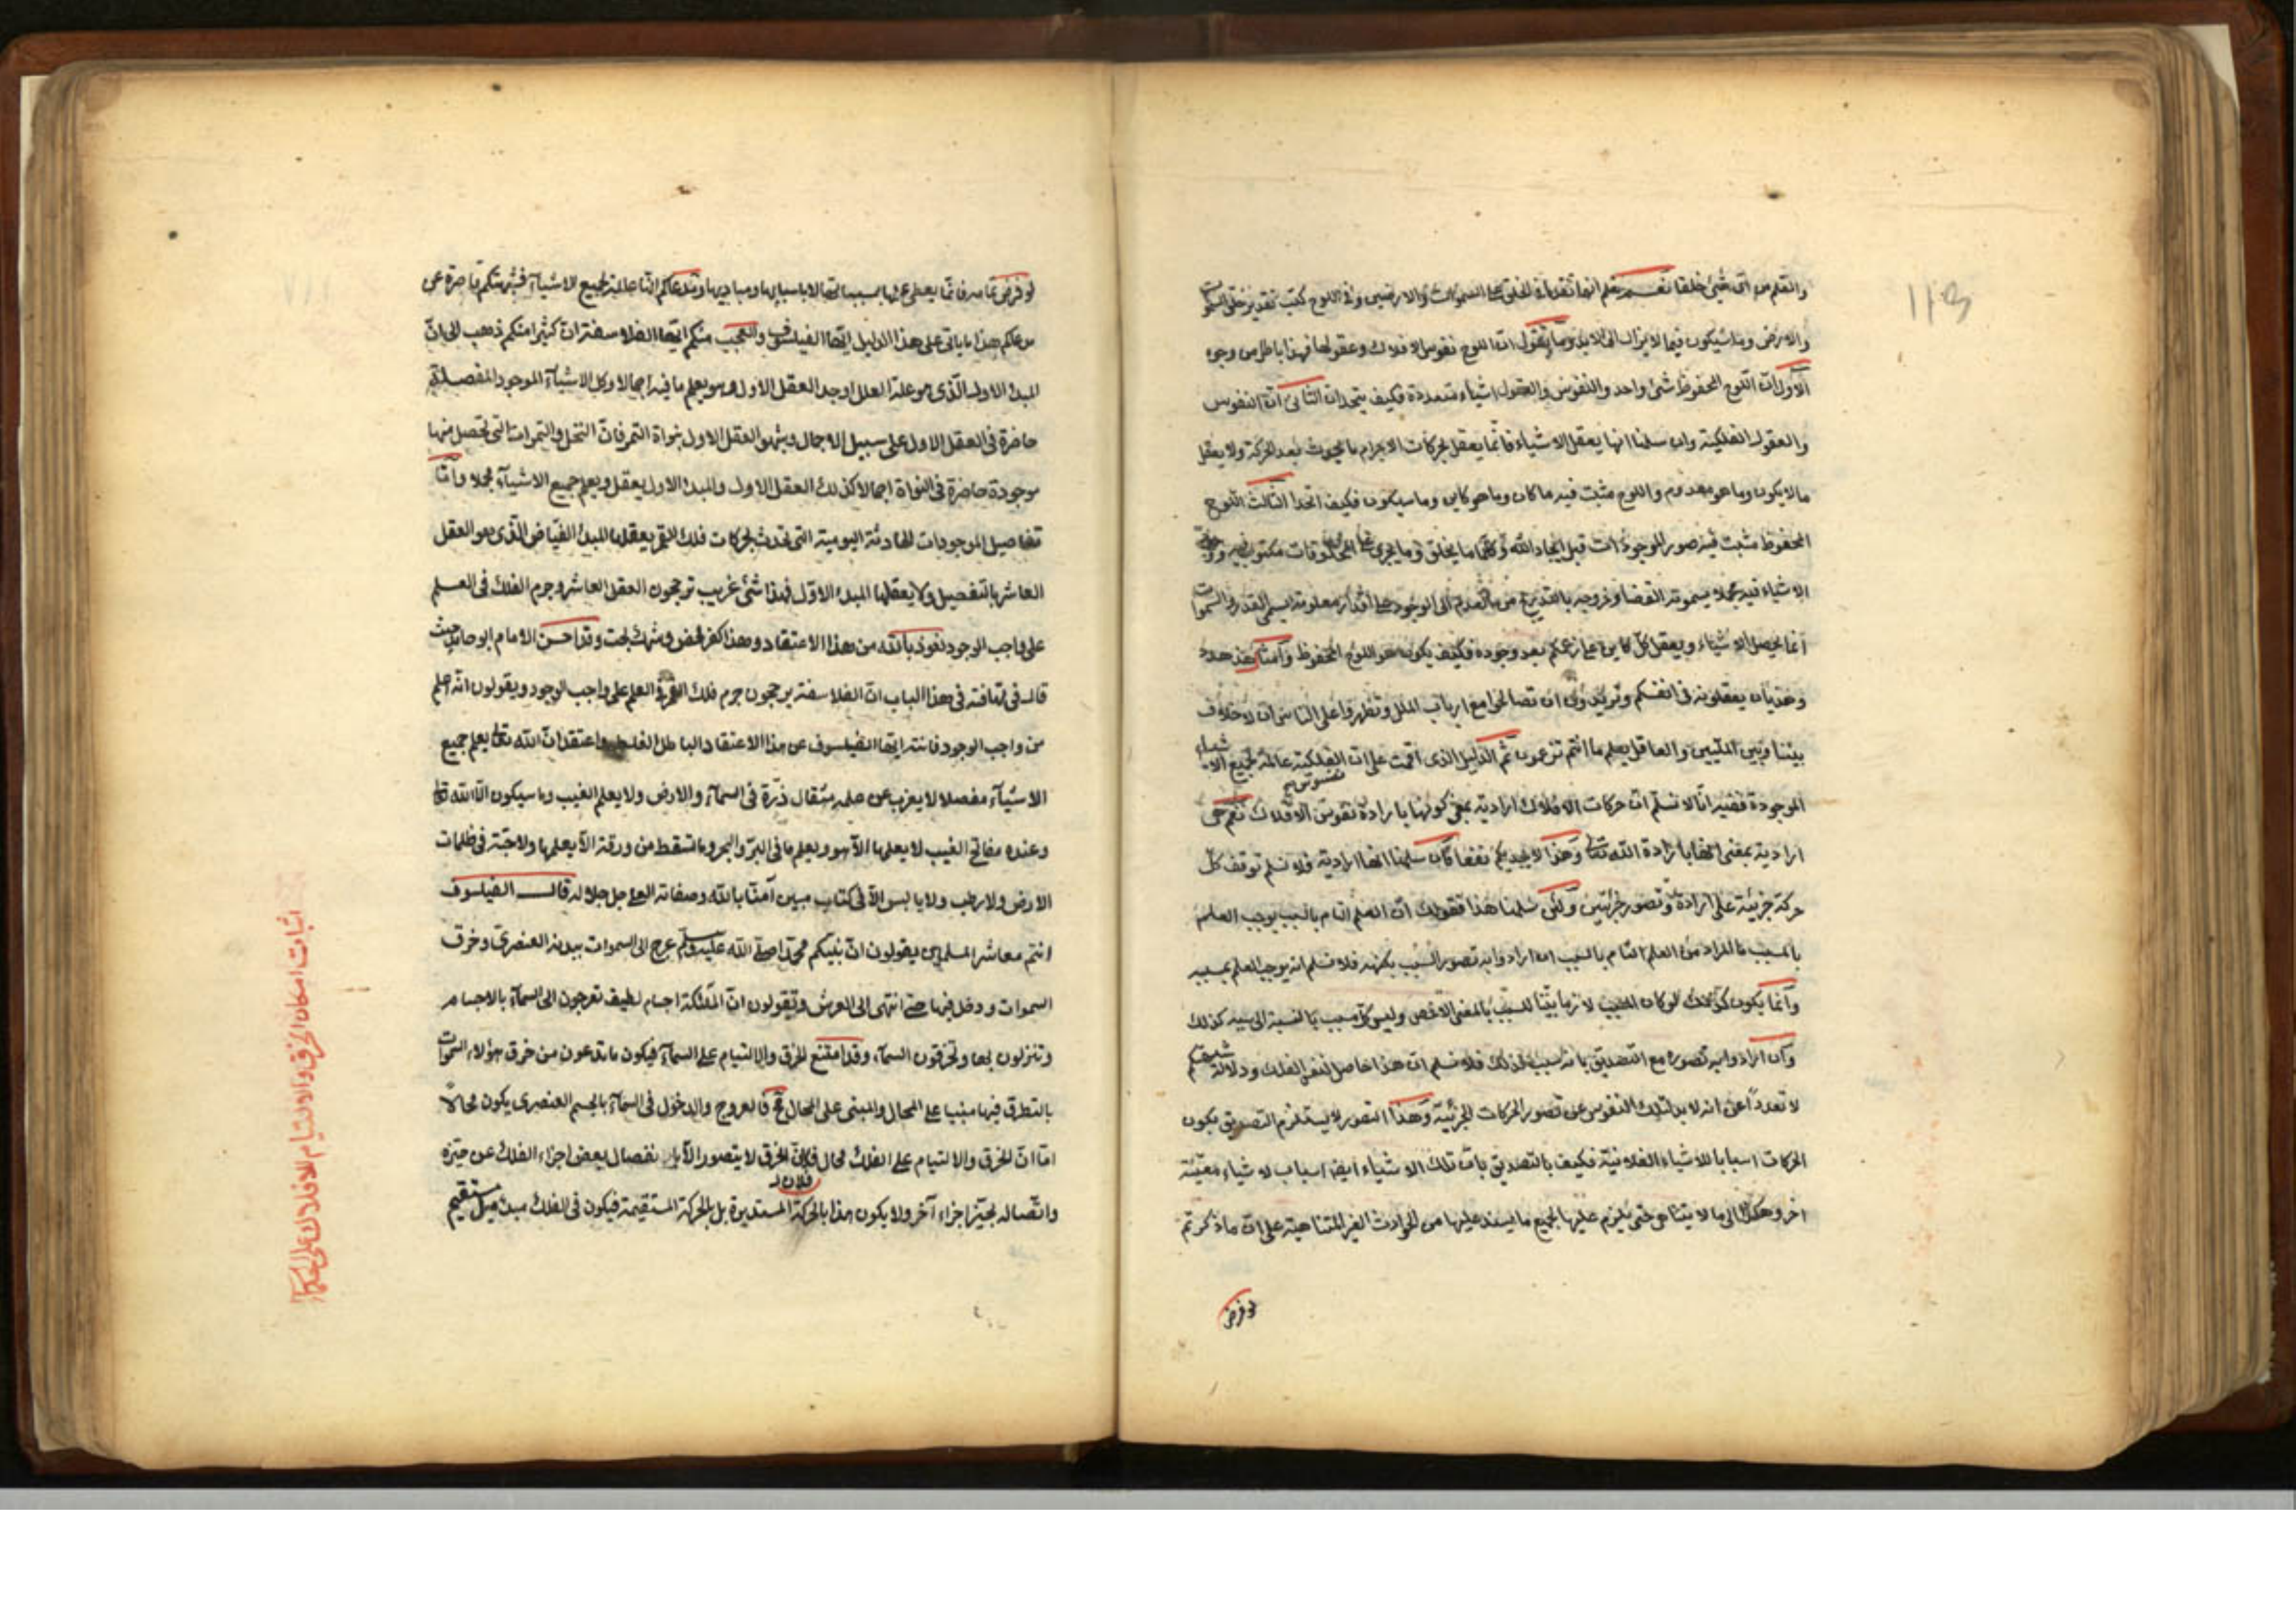 والقلم من اى شئ خلقا نعلم انهما تقدما فى الخلق على السموات والارضين وفى اللوح كتب تقدير خلق السموات
والارض وما سيكون فيما لا يزال الى الابد وما يقول ان اللوح نفوس الافلاك وعقولها فهذا باطل من وجوه
الاول ان اللوح المحفوظ شئ واحد والنفوس والعقول اشياء متعددة فكيف يتحدان الثانى ان النفوس
والعقول الفلكية وان سلمنا انها يعقل الاشياء فانما يعقل بحركات الاجرام ما يحدث بعد الحركة ولا يعقل
ما لا يكون وما هو معدوم واللوح مثبت فيه ما كان وما هو كاين وما سيكون فكيف اتحدا الثالث اللوح
المحفوظ مثبت فيه صور الموجودات قبل ايجاد الله وكلما ما يخلق وما يجرى على المخلوقات مكتوب فيه
الاشياء فيه مجملا يسمونه القضا وخروجه بالتدريج من العدم الى الوجود على اقدار معلومة يسمى القدر
انما يحصل الاشياء ويعقل كل كاين على زعمكم بعد وجوده فكيف يكون هو اللوح المحفوظ
وهذيان يعقلونه فى انفسكم وتريدون ان تصالحوا مع ارباب الملل وتظهروا على الناس ان لا خلاف
بيننا وبين المليين والعاقل يعلم ما انتم تزعمون ثم الدليل الذى اقمت على ان نفوس الفلكية عالمة بجميع الاشياء
الموجودة ففيه انا لا نسلم ان حركات الافلاك ارادية بمعنى كونها بارادة نفوس الافلاك نعم هى
ارادية بمعنى انها بارادة الله تعالى وهذا لا يجديكم نفعا وان سلمنا انها ارادية فلا نسلم توقف كل
حركة جزئية على ارادة وتصور جزئيين ولئن سلمنا هذا فقولك ان العلم التام بالسبب يوجب العلم
بالمسبب ما المراد من العلم التام بالسبب ان ارادوا به تصور السبب بكنهه فلا نسلم انه يوجب العلم بمسببه
وانما يكون كذلك لو كان المسبب لازما بينا للسبب بالمعنى الاخص وليس كل مسبب بالنسبة الى سببه كذلك
وان ارادوا به تصوره مع التصديق بانه سبب لذلك فلا نسلم ان هذا حاصل لنفس الفلك ودلالة شبهتكم
لا تعدد اعن انه لابد لتلك النفوس عن تصور الحركات الجزئية وهذا التصور لا يستلزم التصديق بكون
الحركات اسبابا للاشياء الفلانية فكيف بالتصديق بان تلك الاشياء ايضا اسباب لاشياء معينة
اخر وهكذا الى ما لا يتناهى حتى يلزم عليها الجميع ما يستند عليها من الحوادث الغير المتناهية على ان ما ذكرتم
لو فرض
لو فرض تمامه فانما يعطى عن اسبابها ومباديها ومدعاكم انها عالمة بجميع الاشياء فشبهتكم قاصرة عن
مدعاكم هذا ما ياتى على هذا الدليل ايها الفيلسوف والعجب منكم ايها الفلاسفة ان كثيرا منكم ذهب الى ان
المبدء الاول الذى هو علة العلل اوجد العقل الاول وهو يعلم ما فيه اجمالا وكل الاشياء الموجود المفصلة
حاضرة فى العقل الاول على سبيل الاجمال وشبهوا العقل الاول بنواة التمر فان النخل والتمرات التى تحصل منها
موجودة حاضرة فى النواة اجمالا كذلك العقل الاول والمبدء الاول يعقل ويعلم جميع الاشياء مجملا واما
تفاصيل الموجودات الحادثة اليومية التى تحدث بحركات فلك القمر يعقلها المبدء الفياض الذى هو العقل
العاشر بالتفصيل ولا يعقلها المبدء الاول فهذا شئ غريب ترجحون العقل العاشر وجرم الفلك فى العلم
على واجب الوجود نعوذ بالله من هذا الاعتقاد وهذا كفر محض وشرك بحت وقد احسن الامام ابو حامد حيث
قال فى تهافته فى هذا الباب ان الفلاسفة يرجحون جرم فلك القمر فى العلم على واجب الوجود ويقولون انه اعلم
من واجب الوجود فانته ايها الفيلسوف عن هذا الاعتقاد الباطل الغلط واعتقد ان الله تعالى يعلم جميع
الاشياء مفصلا لا يعزب عن علمه مثقال ذرة فى السماء والارض ولا يعلم الغيب وما سيكون الا الله تعالى
وعنده مفاتح الغيب لا يعلمها الا هو ويعلم ما فى البر والبحر وما تسقط من ورقة الا يعلمها ولا حبة فى ظلمات
الارض ولا رطب ولا يابس الا فى كتاب مبين آمنا بالله وصفاته العلى جل جلاله قال الفيلسوف
انتم معاشر المسلمين يقولون ان نبيكم محمدا صلى الله عليه وسلم عرج الى السموات ببدنه العنصرى وخرق
السموات ودخل فيها حتى انتهى الى العرش وتقولون ان الملئكة اجسام لطيف تعرجون الى السماء بالاجسام
وتنزلون بها وتخرقون السماء وقد امتنع الخرق والالتيام على السماء فيكون ما تدعون من خرق هؤلاء السموات
بالتطرق فيها مبنيا على المحال والمبنى على المحال مح فالعروج والدخول فى السماء بالجسم العنصرى يكون محالا
اما ان الخرق والالتيام على الفلك محال فلان الخرق لا يتصور الا بانفصال بعض اجزاء الفلك عن حيزه
واتصاله بحيز اجزاء آخر ولا يكون هذا بالحركة المستديرة بل بالحركة المستقيمة فيكون فى الفلك مبدء ميل مستقيم
اثبات امكان الخرق والالتيام للافلاك على الحكماء